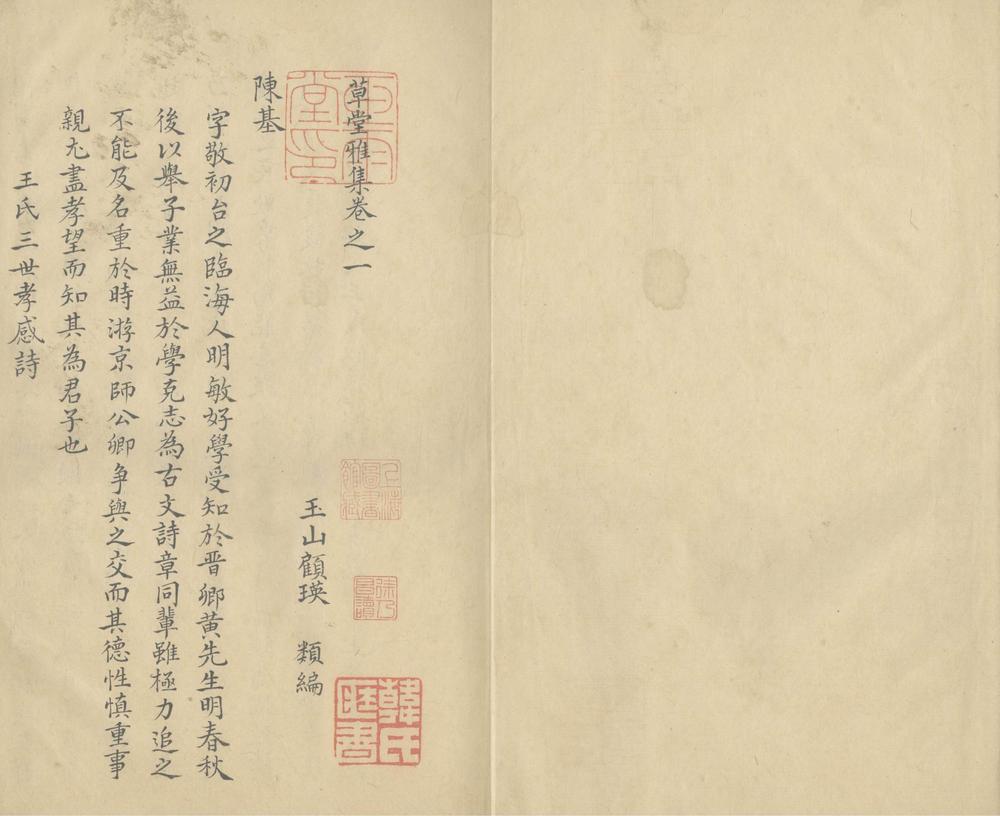 草堂雅集卷之一
玉山顧瑛　類編
陳基
字敬初台之臨海人明敏好學受知於晋卿黄先生明春秋
後以舉子業無益於學克志為古文詩章同輩雖極力追之
不能及名重於時游京師公卿争與之交而其德性慎重事
親尤盡孝望而知其為君子也
王氏三世孝感詩
上海圖書館藏
韓氏